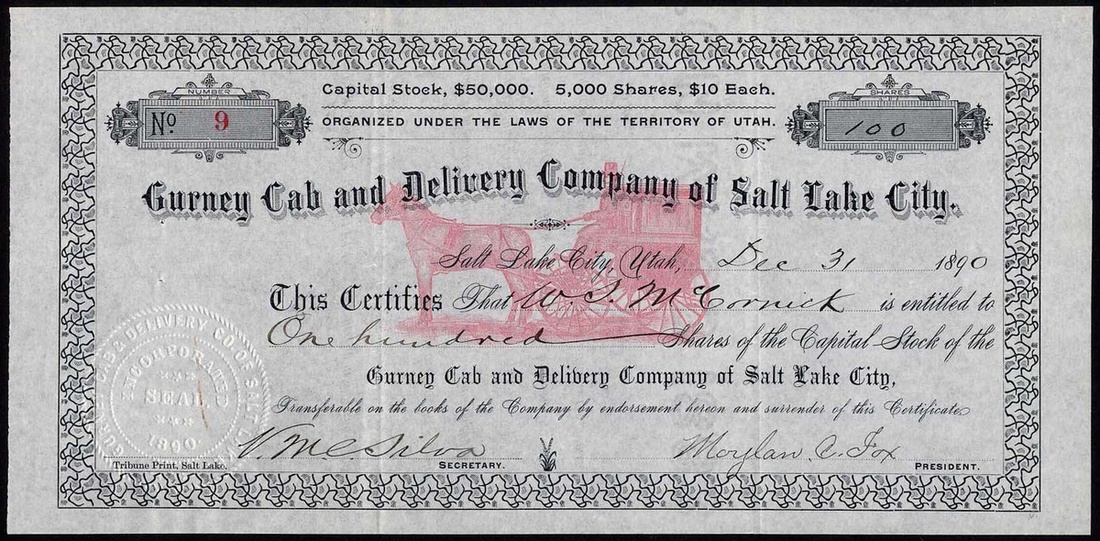 Capital Stock, $50,000. 5,000 Shares, $10 Each.
NUMBER
SHARES
No 9
100
ORGANIZED UNDER THE LAWS OF THE TERRITORY OF UTAH.
Gurney Cab and Delivery Company of Salt Lake City.
Salt Lake City, Utah, Dec 31 1890
This Certifies That W. S. McCornick is entitled to
One hundred Shares of the Capital Stock of the
Gurney Cab and Delivery Company of Salt Lake City,
Transferable on the books of the Company by endorsement hereon and surrender of this Certificate
GURNEY CAB & DELIVERY CO. OF SALT LAKE
INCORPORATED
SEAL
1890
V. McSilva
Moylan C. Fox
Tribune Print, Salt Lake.
SECRETARY.
PRESIDENT.